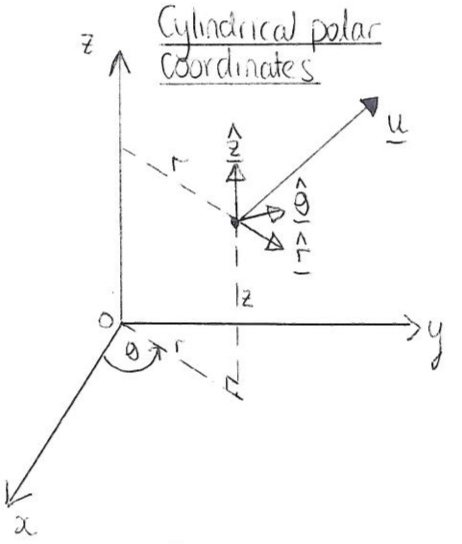 Cylindrical polar
Coordinates
z
r
ẑ
u
θ̂
r̂
z
O
y
θ
r
x